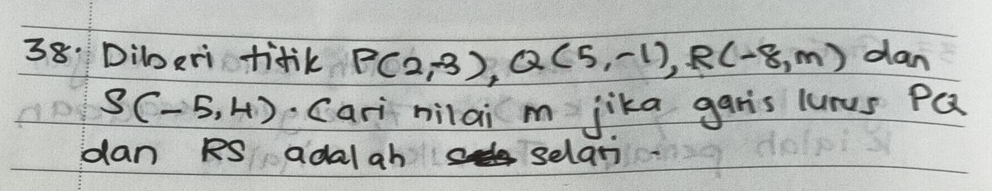 38. Diberi titik P(2,-3), Q(5,-1), R(-8,m) dan
S(-5,4). Cari nilai m jika garis lurus PQ
dan RS adalah selari.